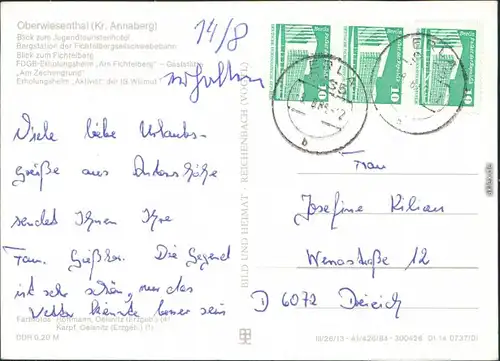 Oberwiesenthal (Kr. Annaberg)
Blick zum Jugendtouristenhotel
Bergstation der Fichtelbergseilschwebebahn
Blick zum Fichtelberg
FDGB-Erholungsheim „Am Fichtelberg“ – Gaststätte
„Am Zechengrund“
Erholungsheim „Aktivist“ der IG Wismut
14/8
erhalten
Viele liebe Urlaubs-
grüße aus
sendet Ihnen Ihre
Fam. Die Gegend
ist sehr schön, nur das
Wetter könnte besser sein
BILD UND HEIMAT · REICHENBACH (VOGTL)
10 10 10
Frau
Josefine Kilian
Wenastraße 12
D 6072 Dreieich
Gelenitz (Erzgeb.) (4)
Karpf, Gelenitz (Erzgeb.) (1)
DDR 0,20 M
III/26/13 01 14 0737(D)